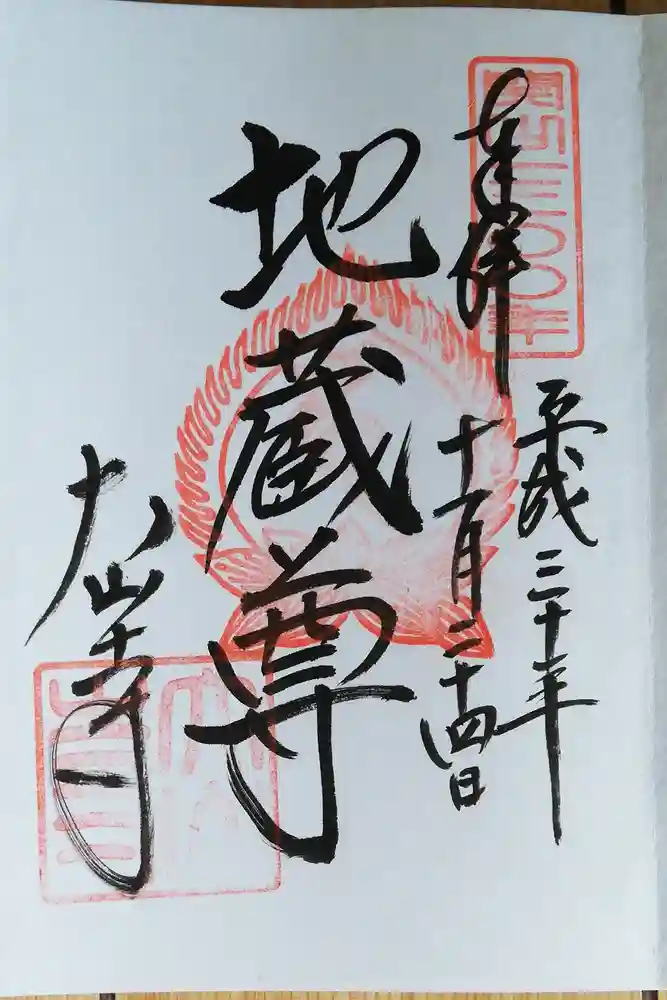 奉拝
平成三十年
十一月二十四日
地蔵尊
大山寺